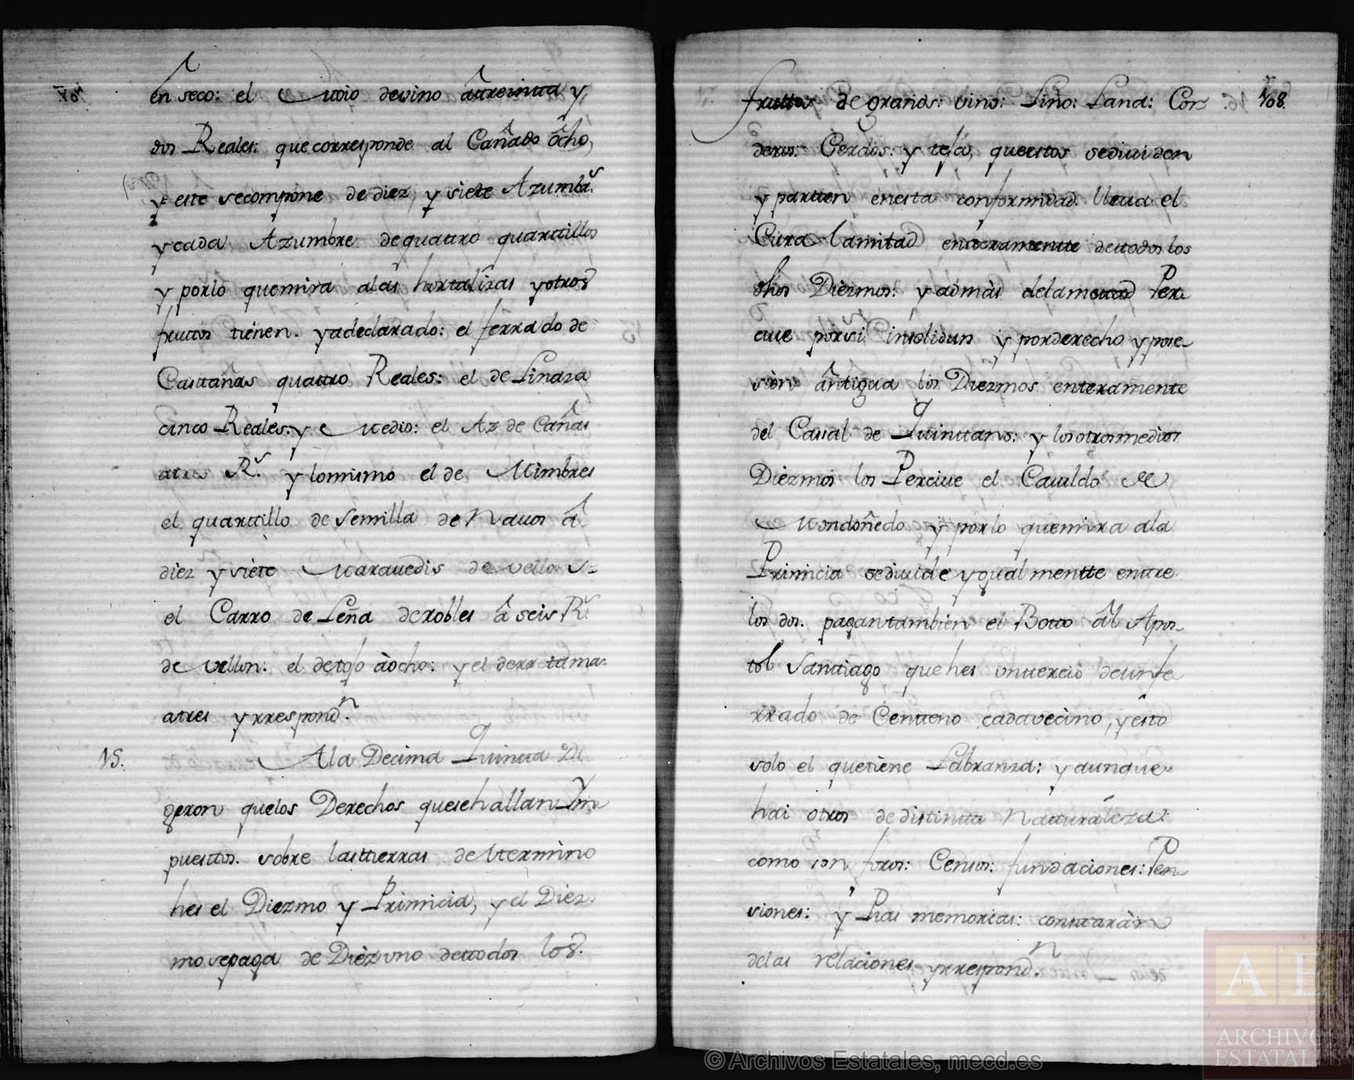 en seco: el Moio devino atreinta y
dos Reales: que corresponde al Cañado ôcho,
y este secompone de diez, y siete Azumb.s
y cada Azumbre de quattro quarttillos
y porlo quemira alas hortalizas yotros
fruttos tienen. yadeclarado: el ferrado de
Casttañas quattro Reales: el de Linaza
cinco Reales: y Medio: el Az de Cañas
atres R.s y lomismo el de Mimbres
el quarttillo de Semilla de Navos â
diez y siete Maravedis de vellon
el Carro de Leña de robles â seis R.s
de vellon: el de tojo àocho: y el de rrettama
atres y rrespond.n
15. Ala Decima Quinta Di
geron quelos Derechos quesehallan Ym
puesttos. sobre lasttierras de el ttermino
hes el Diezmo y Primicia, y el Diez
mo sepaga de Dièz vno dettodos los
708.
fruttos de granos: vino: Lino: Lana: Cor
deros: Cerdos: y
y partten enesta conformidad. lleva el
Cura lamitad entteramente dettodos los
dhos Diezmos: y admàs delamettad Per
cive porsi insolidun y porderecho y pose
siòn ântigua los Diezmos enteramente
del Casal de Quinttans: y los otros medios
Diezmos los Percive el Cavildo de
Mondoñedo y porlo quemira ala
Primicia sedivide yqualmentte entre
los dos. pagan tambièn el Botto âl Apos
tol Santtiago que hes vn ttercio de un fe
rrado de Centteno cada vecino, y êsto
solo el quettiene Labranza: y aunque
hai ôtros de disttintta Natturàleza
como son foros: Censos: fundaciones: Pen
siones: y Pias memorias: consttaràn
delas relaciones y rrespond.n
© Archivos Estatales, mecd.es
AE
ARCHIVOS
ESTATALES